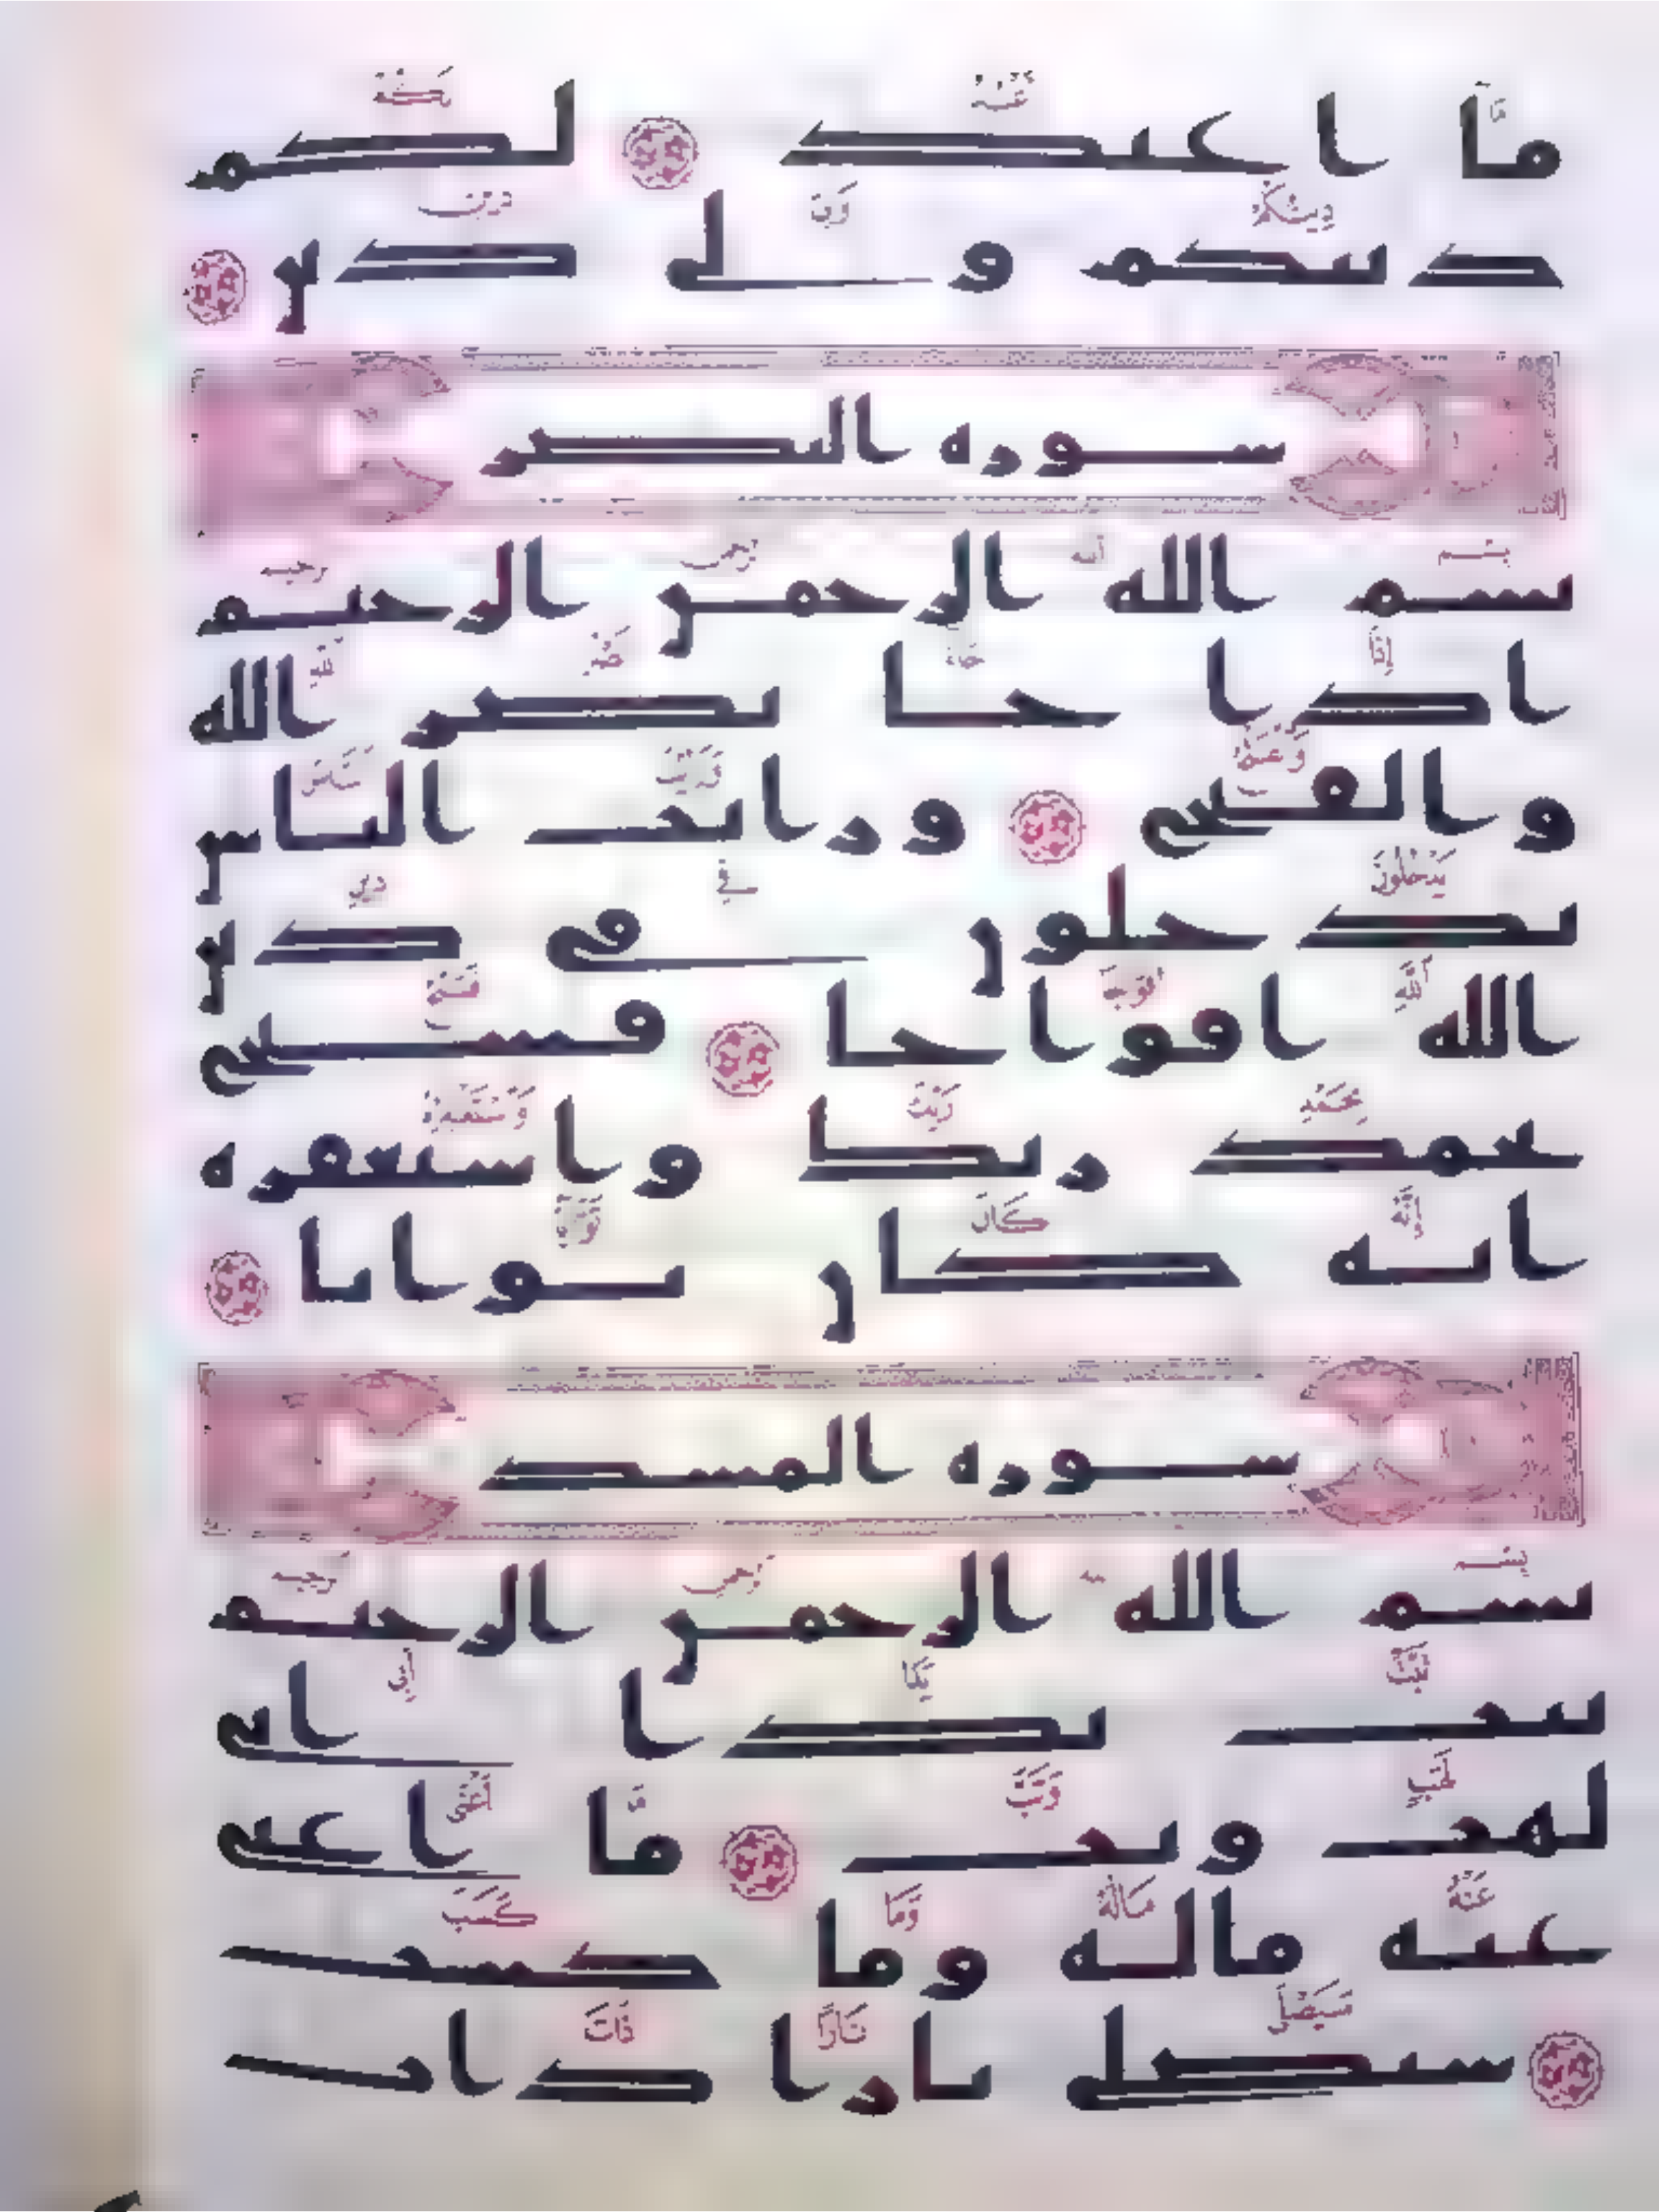 ما اعبد لكم
دينكم ولي دين
سورة النصر
بسم الله الرحمن الرحيم
اذا جا نصر الله
والفتح ورايت الناس
يدخلون في دين
الله افواجا فسبح
بحمد ربك واستغفره
انه كان توابا
سورة المسد
بسم الله الرحمن الرحيم
تبت يدا ابي
لهب وتب ما اغنى
عنه ماله وما كسب
سيصلى نارا ذات